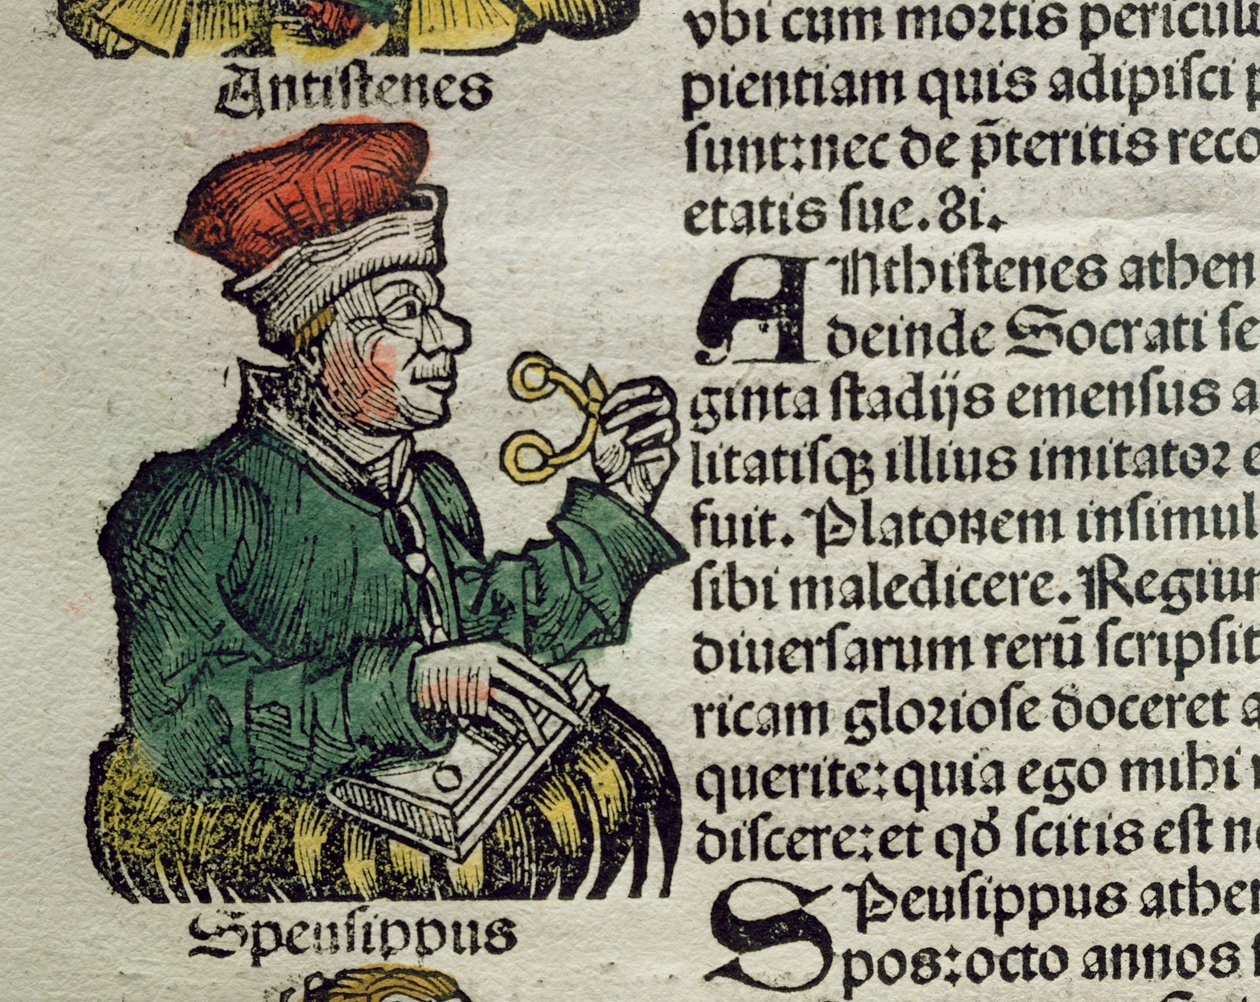 Antiſtenes
Speuſippus
vbi cum moꝛtis
pientiam quis adipiſci
ſunt:nec de p̄teritis
etatis ſue.8i.
ANthiſtenes
deinde Socrati
ginta ſtadijs emenſus
litatiſqꝫ illius imitatoꝛ
fuit. Platonem
ſibi maledicere.
diuerſarum rerū
ricam gloꝛioſe doceret
querite:quia ego mihi
diſcere:et qđ ſcitis eſt
SPeuſippus
pos:octo annos